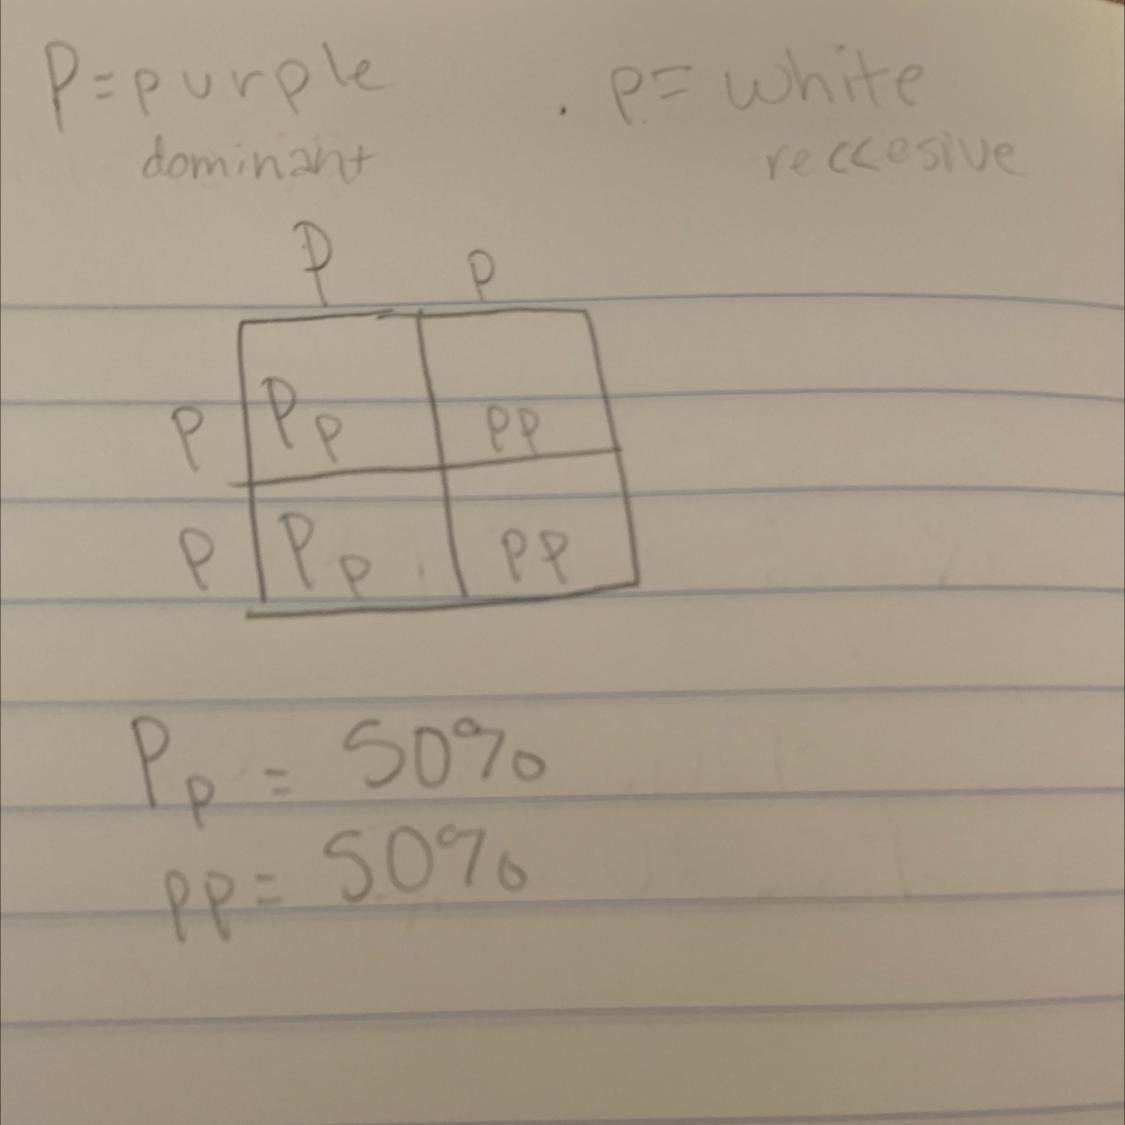 P=purple p= white
dominant reccesive
P p
p Pp pp
p Pp pp
Pp = 50%
pp= 50%